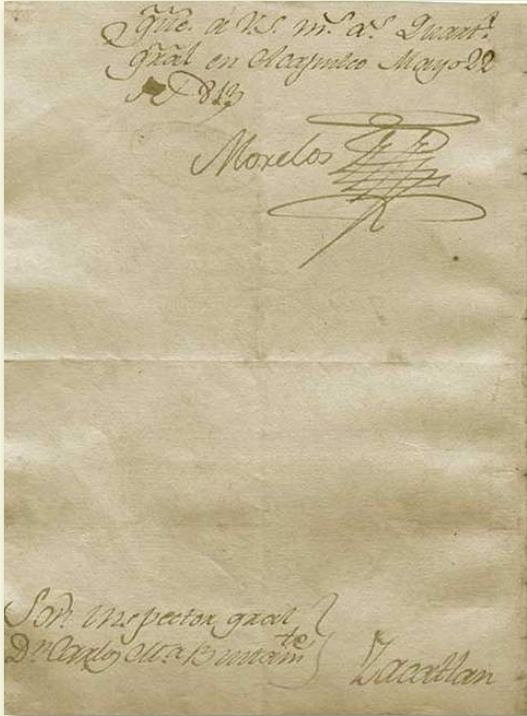 gũe. á V.S. m.s a.s Quart.l
gräl en Acapulco Mayo 22
de 813
Morelos
Sor. Inspector gral
Dn. Carlos Ma. Bustamte
Zacatlan